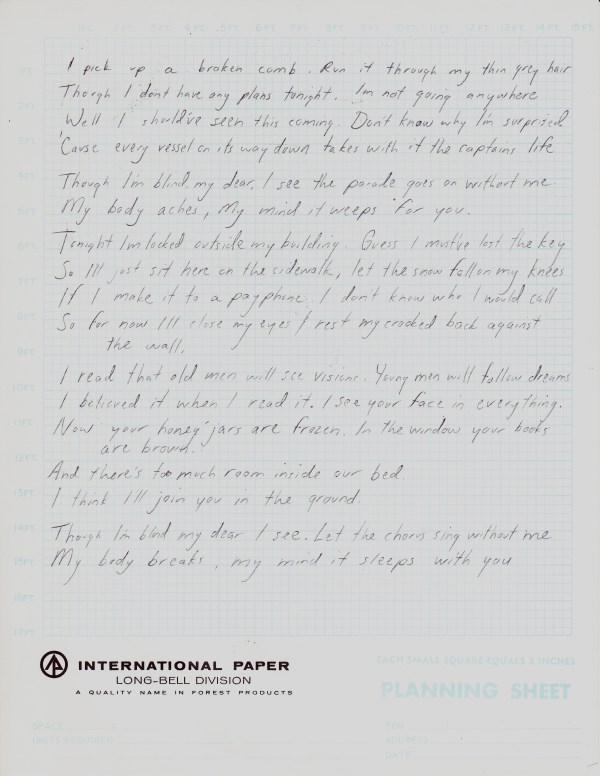 I pick up a broken comb. Run it through my thin grey hair
Though I don't have any plans tonight. I'm not going anywhere
Well I should've seen this coming. Don't know why I'm surprised
'Cause every vessel on its way down takes with it the captains life
Though I'm blind, my dear, I see the parade goes on without me
My body aches, My mind it weeps For you.
Tonight I'm locked outside my building. Guess I must've lost the key
So I'll just sit here on the sidewalk, let the snow fall on my knees
If I make it to a payphone. I don't know who I would call
So for now I'll close my eyes / rest my crooked back against
the wall.
I read that old men will see visions. Young men will follow dreams
I believed it when I read it. I see your face in everything.
Now your honey jars are frozen. In the window your books
are brown.
And there's too much room inside our bed.
I think I'll join you in the ground.
Though I'm blind my dear I see. Let the chorus sing without me
My body breaks, my mind it sleeps with you
INTERNATIONAL PAPER
LONG-BELL DIVISION
A QUALITY NAME IN FOREST PRODUCTS
EACH SMALL SQUARE EQUALS 3 INCHES
PLANNING SHEET
SPACE
UNITS REQUIRED
FOR
ADDRESS
DATE